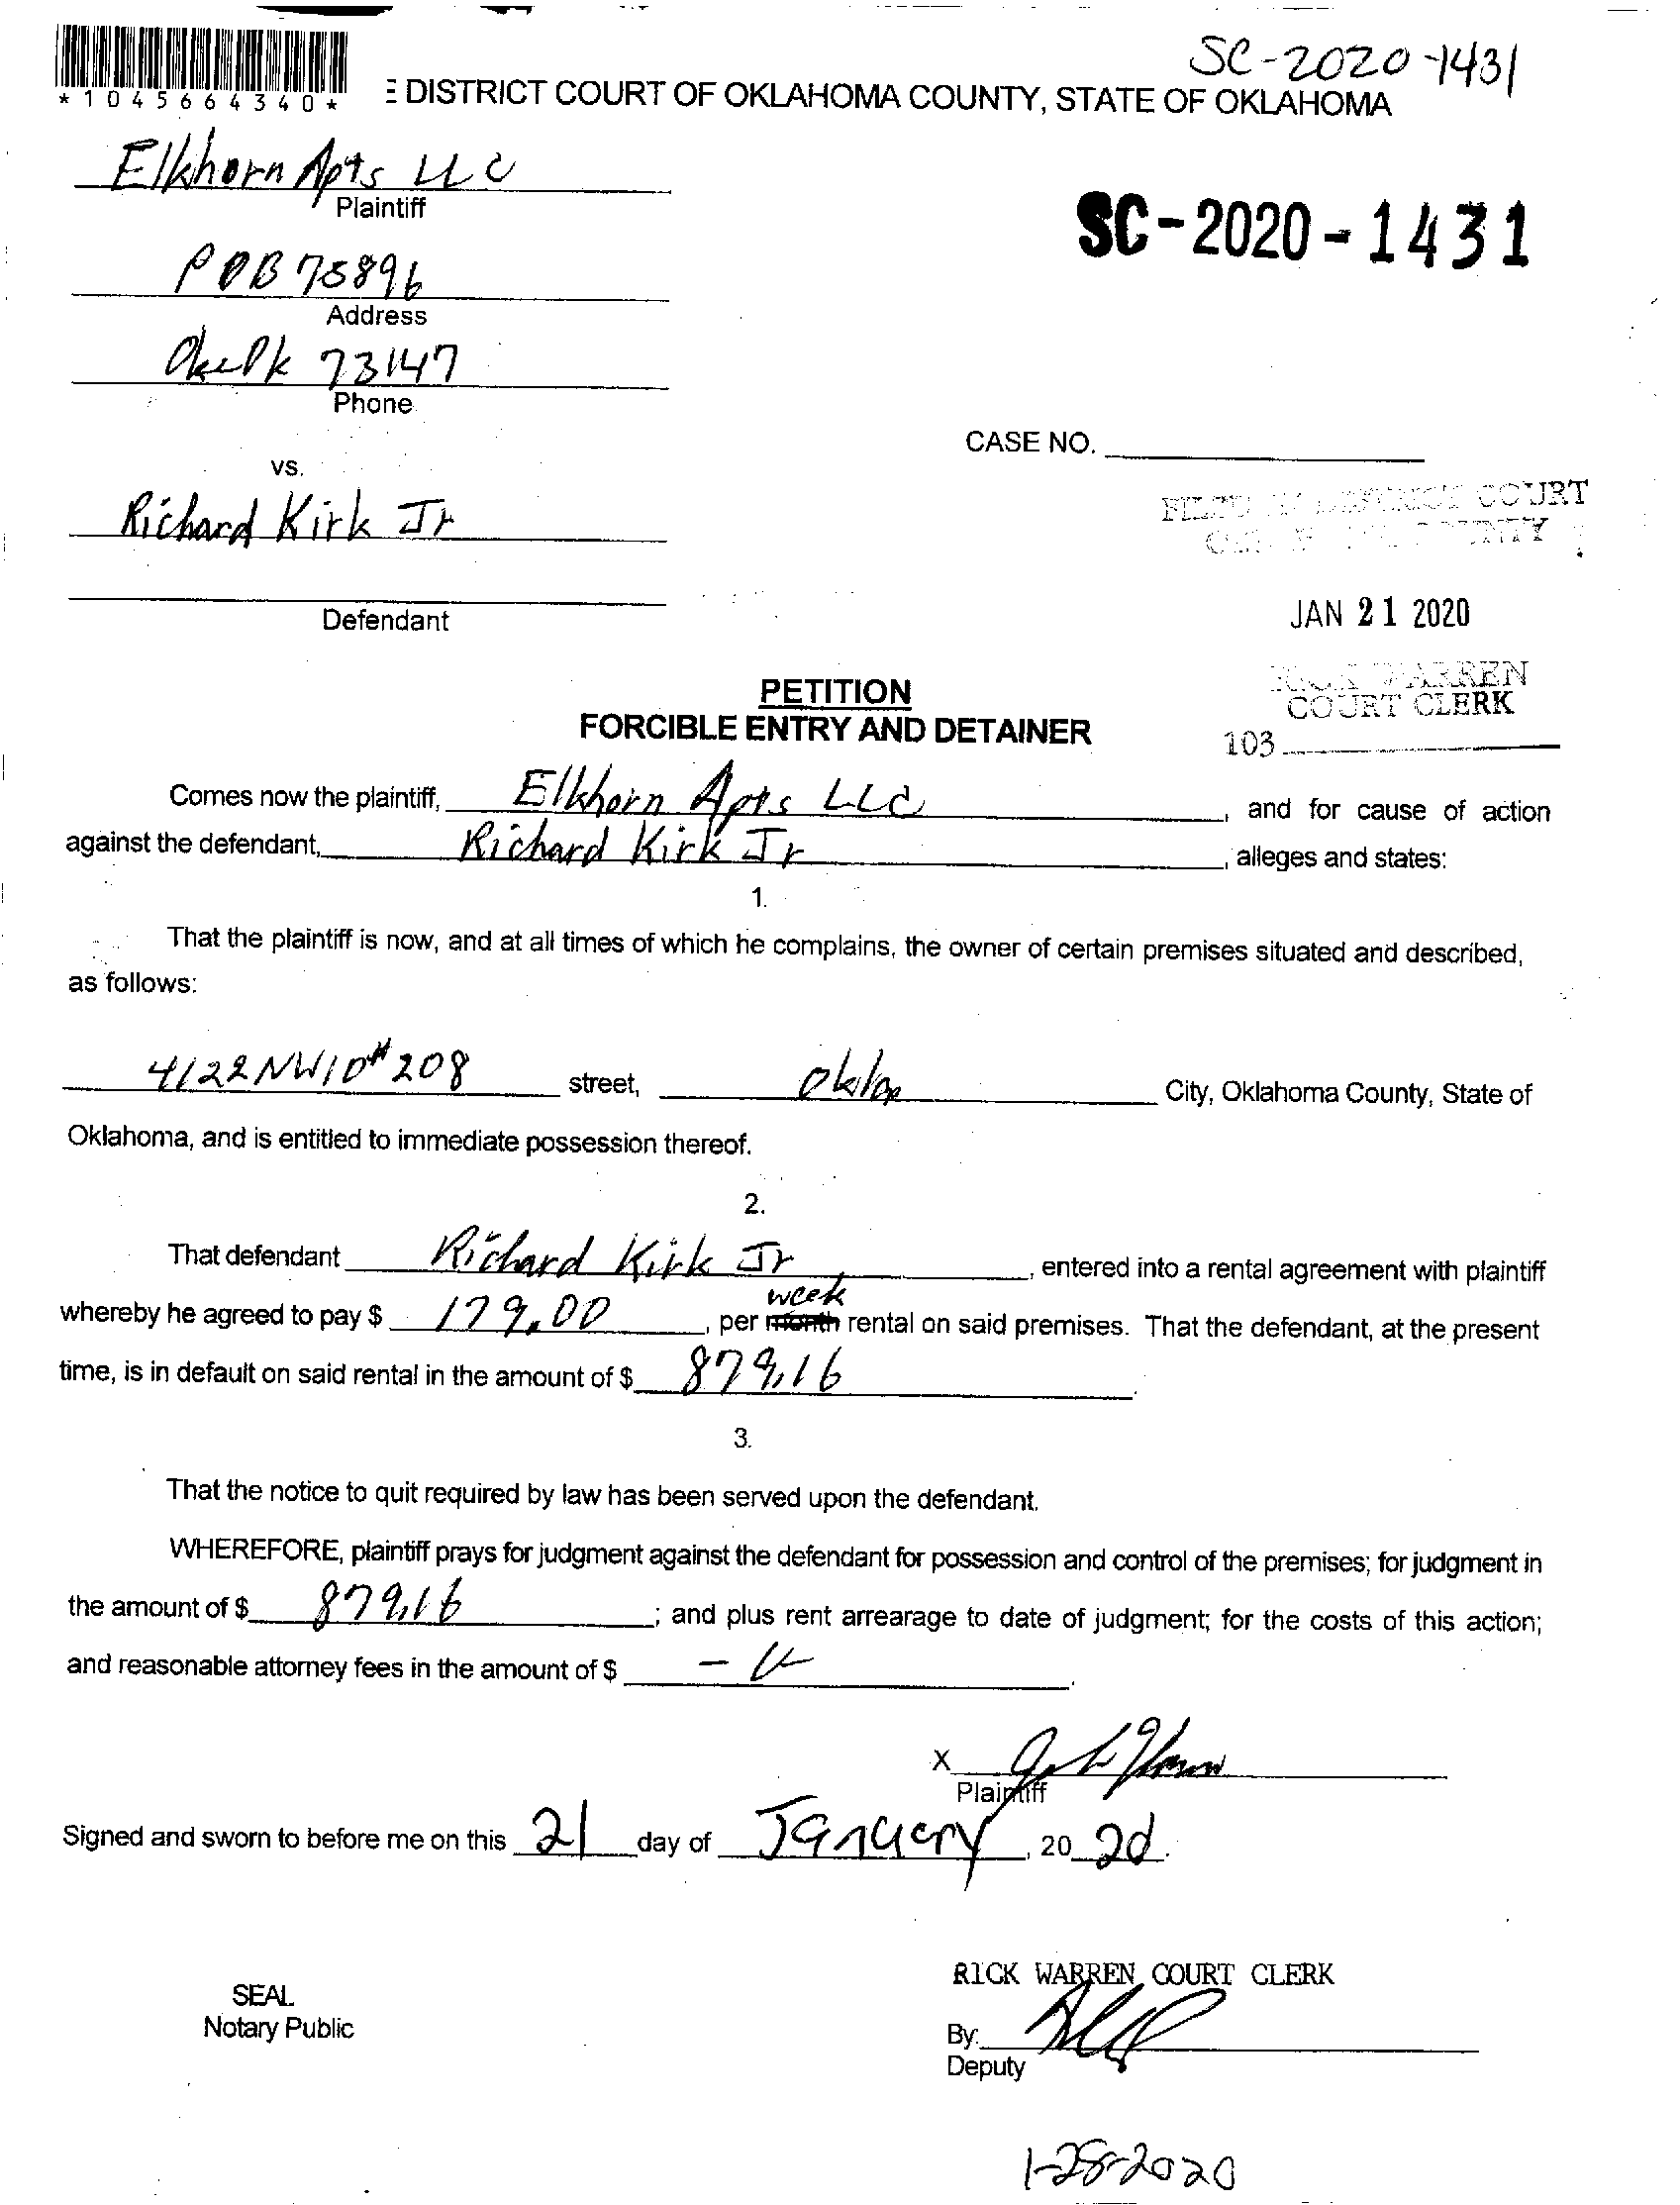 SC-2020-1431
*1045664340*
E DISTRICT COURT OF OKLAHOMA COUNTY, STATE OF OKLAHOMA
Elkhorn Apts LLC
Plaintiff
SC-2020-1431
POB 75896
Address
73147
Phone
CASE NO.
vs.
Richard Kirk Jr
COURT
Defendant
JAN 21 2020
PETITION
WARREN
COURT CLERK
FORCIBLE ENTRY AND DETAINER
103
Comes now the plaintiff, Elkhorn Apts LLC, and for cause of action
against the defendant, Richard Kirk Jr, alleges and states:
1.
That the plaintiff is now, and at all times of which he complains, the owner of certain premises situated and described,
as follows:
4122 NW 10 #208 street, City, Oklahoma County, State of
Oklahoma, and is entitled to immediate possession thereof.
2.
That defendant Richard Kirk Jr, entered into a rental agreement with plaintiff
week
whereby he agreed to pay $ 179.00, per month rental on said premises. That the defendant, at the present
time, is in default on said rental in the amount of $ 879.16.
3.
That the notice to quit required by law has been served upon the defendant.
WHEREFORE, plaintiff prays for judgment against the defendant for possession and control of the premises; for judgment in
the amount of $ 879.16; and plus rent arrearage to date of judgment; for the costs of this action;
and reasonable attorney fees in the amount of $
X
Plaintiff
Signed and sworn to before me on this 21 day of January, 20 20.
RICK WARREN COURT CLERK
SEAL
Notary Public
By:
Deputy
1-28-2020